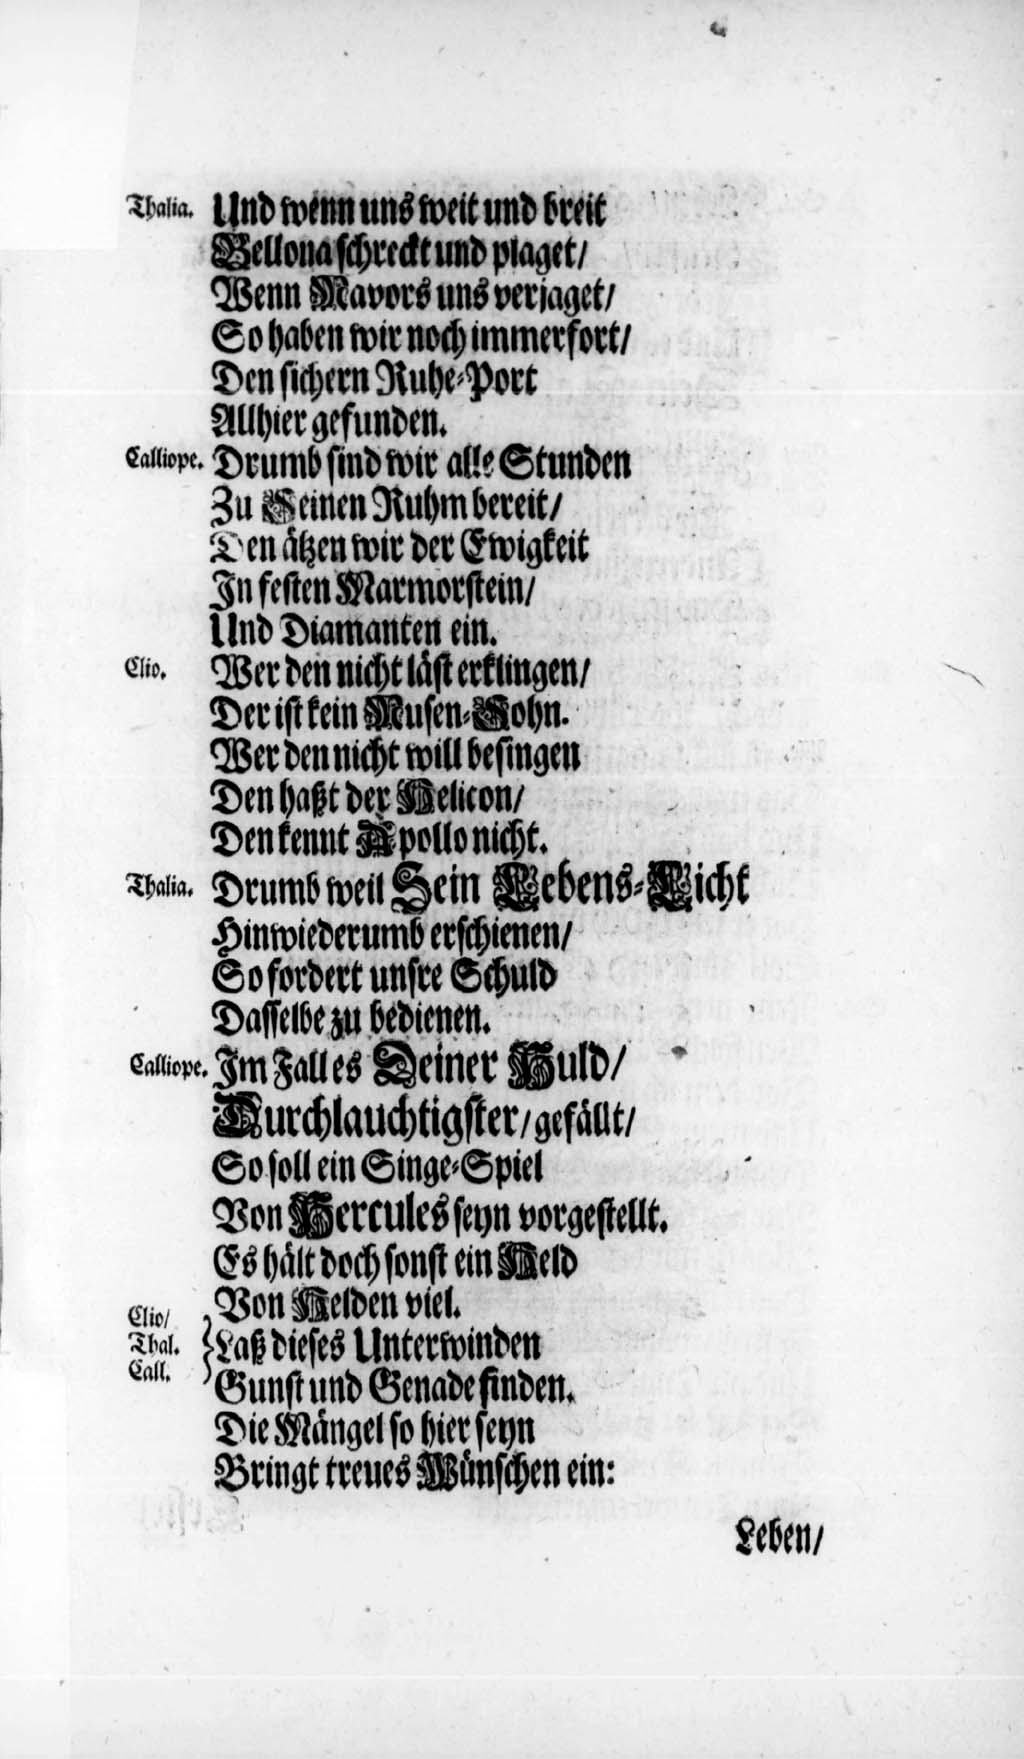 Thalia. Und wenn uns weit und breit
Bellona schreckt und plaget/
Wenn Mavors uns verjaget/
So haben wir noch immerfort/
Den sichern Ruhe-Port
Allhier gefunden.
Calliope. Drumb sind wir alle Stunden
Zu Seinen Ruhm bereit/
Den ätzen wir der Ewigkeit
In festen Marmorstein/
Und Diamanten ein.
Clio. Wer den nicht läst erklingen/
Der ist kein Musen-Sohn.
Wer den nicht will besingen
Den haßt der Helicon/
Den kennt Apollo nicht.
Thalia. Drumb weil Sein Lebens-Licht
Hinwiederumb erschienen/
So fordert unsre Schuld
Dasselbe zu bedienen.
Calliope. Im Fall es Deiner Huld/
Durchlauchtigster/ gefällt/
So soll ein Singe-Spiel
Von Hercules seyn vorgestellt.
Es hält doch sonst ein Held
Von Helden viel.
Clio/
Thal. Laß dieses Unterwinden
Call. Gunst und Genade finden.
Die Mängel so hier seyn
Bringt treues Wünschen ein:
Leben/